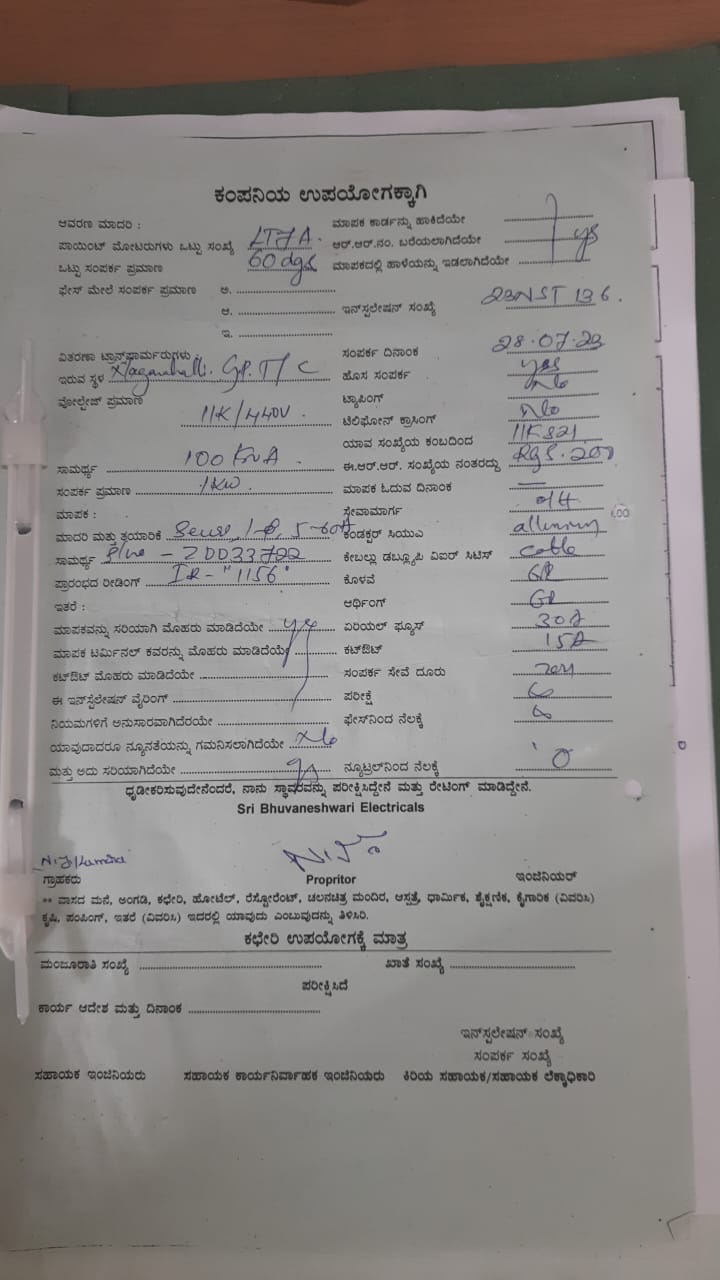 ಕಂಪನಿಯ ಉಪಯೋಗಕ್ಕಾಗಿ
ಆವರಣ ಮಾದರಿ : ಮಾಪಕ ಕಾರ್ಡನ್ನು ಹಾಕಿದೆಯೇ
ಪಾಯಿಂಟ್ ಮೋಟರುಗಳು ಒಟ್ಟು ಸಂಖ್ಯೆ LT7A. ಆರ್.ಆರ್.ನಂ. ಬರೆಯಲಾಗಿದೆಯೇ yes
ಒಟ್ಟು ಸಂಪರ್ಕ ಪ್ರಮಾಣ 60 dgs ಮಾಪಕದಲ್ಲಿ ಹಾಳೆಯನ್ನು ಇಡಲಾಗಿದೆಯೇ
ಫೇಸ್ ಮೇಲೆ ಸಂಪರ್ಕ ಪ್ರಮಾಣ ಅ.
ಆ. ಇನ್‌ಸ್ಟಲೇಷನ್ ಸಂಖ್ಯೆ 23NST 136.
ಇ.
ವಿತರಣಾ ಟ್ರಾನ್ಸ್‌ಫಾರ್ಮರುಗಳು ಸಂಪರ್ಕ ದಿನಾಂಕ 28.07.23
ಇರುವ ಸ್ಥಳ G.P. T/C ಹೊಸ ಸಂಪರ್ಕ yes
ವೋಲ್ಟೇಜ್ ಪ್ರಮಾಣ 11K/440V. ಟ್ಯಾಪಿಂಗ್ No
ಟೆಲಿಫೋನ್ ಕ್ರಾಸಿಂಗ್ No
ಯಾವ ಸಂಖ್ಯೆಯ ಕಂಬದಿಂದ
ಸಾಮರ್ಥ್ಯ 100 KVA. ಈ.ಆರ್.ಆರ್. ಸಂಖ್ಯೆಯ ನಂತರದ್ದು
ಸಂಪರ್ಕ ಪ್ರಮಾಣ 1KW ಮಾಪಕ ಓದುವ ದಿನಾಂಕ —
ಮಾಪಕ : ಸೇವಾಮಾರ್ಗ o/H
ಮಾದರಿ ಮತ್ತು ತಯಾರಿಕೆ ಕಂಡಕ್ಟರ್ ಸಿಯುಎ
ಸಾಮರ್ಥ್ಯ ಕೇಬಲ್ಲು ಡಬ್ಲ್ಯೂಪಿ ವಿಐರ್ ಸಿಟಿಸ್ cable
ಪ್ರಾರಂಭದ ರೀಡಿಂಗ್ IR - "1156" ಕೊಳವೆ GI
ಇತರೆ : ಆರ್ಥಿಂಗ್ GI
ಮಾಪಕವನ್ನು ಸರಿಯಾಗಿ ಮೊಹರು ಮಾಡಿದೆಯೇ yes ಏರಿಯಲ್ ಫ್ಯೂಸ್ 30A
ಮಾಪಕ ಟರ್ಮಿನಲ್ ಕವರನ್ನು ಮೊಹರು ಮಾಡಿದೆಯೇ ಕಟ್‌ಔಟ್ 15A
ಕಟ್‌ಔಟ್ ಮೊಹರು ಮಾಡಿದೆಯೇ ಸಂಪರ್ಕ ಸೇವೆ ದೂರು
ಈ ಇನ್‌ಸ್ಟಲೇಷನ್ ವೈರಿಂಗ್ ಪರೀಕ್ಷೆ
ನಿಯಮಗಳಿಗೆ ಅನುಸಾರವಾಗಿದೆರಯೇ ಫೇಸ್‌ನಿಂದ ನೆಲಕ್ಕೆ
ಯಾವುದಾದರೂ ನ್ಯೂನತೆಯನ್ನು ಗಮನಿಸಲಾಗಿದೆಯೇ No
ಮತ್ತು ಅದು ಸರಿಯಾಗಿದೆಯೇ ನ್ಯೂಟ್ರಲ್‌ನಿಂದ ನೆಲಕ್ಕೆ
ಧೃಡೀಕರಿಸುವುದೇನೆಂದರೆ, ನಾನು ಸ್ಥಾವರವನ್ನು ಪರೀಕ್ಷಿಸಿದ್ದೇನೆ ಮತ್ತು ರೇಟಿಂಗ್ ಮಾಡಿದ್ದೇನೆ.
Sri Bhuvaneshwari Electricals
ಗ್ರಾಹಕರು Propritor ಇಂಜಿನಿಯರ್
** ವಾಸದ ಮನೆ, ಅಂಗಡಿ, ಕಛೇರಿ, ಹೋಟೆಲ್, ರೆಸ್ಟೋರೆಂಟ್, ಚಲನಚಿತ್ರ ಮಂದಿರ, ಆಸ್ಪತ್ರೆ, ಧಾರ್ಮಿಕ, ಶೈಕ್ಷಣಿಕ, ಕೈಗಾರಿಕ (ವಿವರಿಸಿ)
ಕೃಷಿ, ಪಂಪಿಂಗ್, ಇತರೆ (ವಿವರಿಸಿ) ಇದರಲ್ಲಿ ಯಾವುದು ಎಂಬುವುದನ್ನು ತಿಳಿಸಿರಿ.
ಕಛೇರಿ ಉಪಯೋಗಕ್ಕೆ ಮಾತ್ರ
ಮಂಜೂರಾತಿ ಸಂಖ್ಯೆ ಖಾತೆ ಸಂಖ್ಯೆ
ಪರೀಕ್ಷಿಸಿದೆ
ಕಾರ್ಯ ಆದೇಶ ಮತ್ತು ದಿನಾಂಕ
ಇನ್‌ಸ್ಪಲೇಷನ್ ಸಂಖ್ಯೆ
ಸಂಪರ್ಕ ಸಂಖ್ಯೆ
ಸಹಾಯಕ ಇಂಜಿನಿಯರು ಸಹಾಯಕ ಕಾರ್ಯನಿರ್ವಾಹಕ ಇಂಜಿನಿಯರು ಕಿರಿಯ ಸಹಾಯಕ/ಸಹಾಯಕ ಲೆಕ್ಕಾಧಿಕಾರಿ